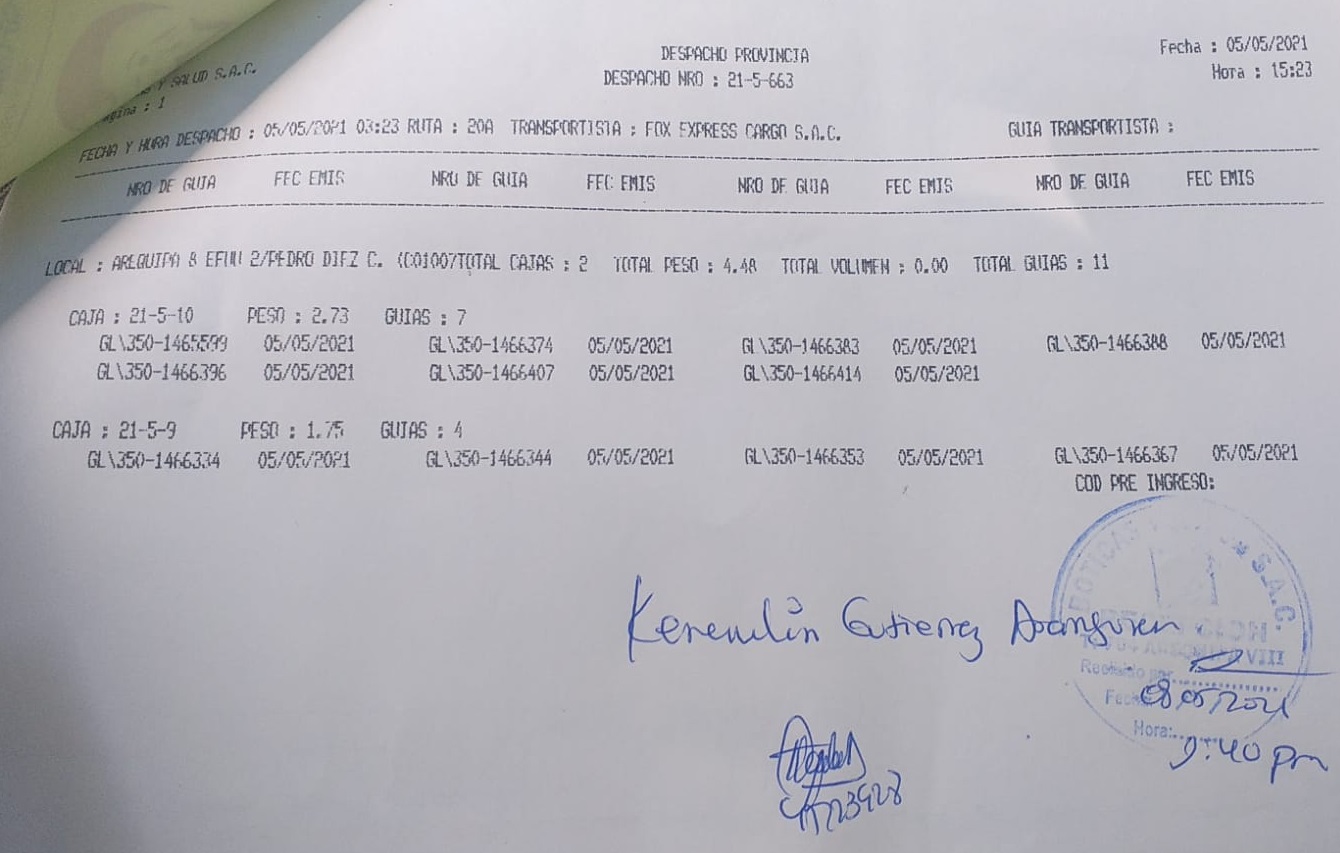 DESPACHO PROVINCIA
Fecha : 05/05/2021
Y SALUD S.A.C.
DESPACHO NRO : 21-5-663
Hora : 15:23
Pagina : 1
FECHA Y HORA DESPACHO : 05/05/2021 03:23 RUTA : 20A TRANSPORTISTA : FOX EXPRESS CARGO S.A.C. GUIA TRANSPORTISTA :
NRO DE GUIA FEC EMIS NRO DE GUIA FEC EMIS NRO DE GUIA FEC EMIS NRO DE GUIA FEC EMIS
LOCAL : AREQUIPA 8 EFUU 2/PEDRO DIEZ C. (C01007TOTAL CAJAS : 2 TOTAL PESO : 4.48 TOTAL VOLUMEN : 0.00 TOTAL GUIAS : 11
CAJA : 21-5-10 PESO : 2.73 GUIAS : 7
GL\350-1465599 05/05/2021 GL\350-1466374 05/05/2021 GL\350-1466383 05/05/2021 GL\350-1466388 05/05/2021
GL\350-1466396 05/05/2021 GL\350-1466407 05/05/2021 GL\350-1466414 05/05/2021
CAJA : 21-5-9 PESO : 1.75 GUIAS : 4
GL\350-1466334 05/05/2021 GL\350-1466344 05/05/2021 GL\350-1466353 05/05/2021 GL\350-1466367 05/05/2021
COD PRE INGRESO:
BOTICAS Y S.A.C.
Keremlin Gutierrez Aranguren
VIII
Recibido por
Fecha 08/05/2021
Hora: 9:40 pm